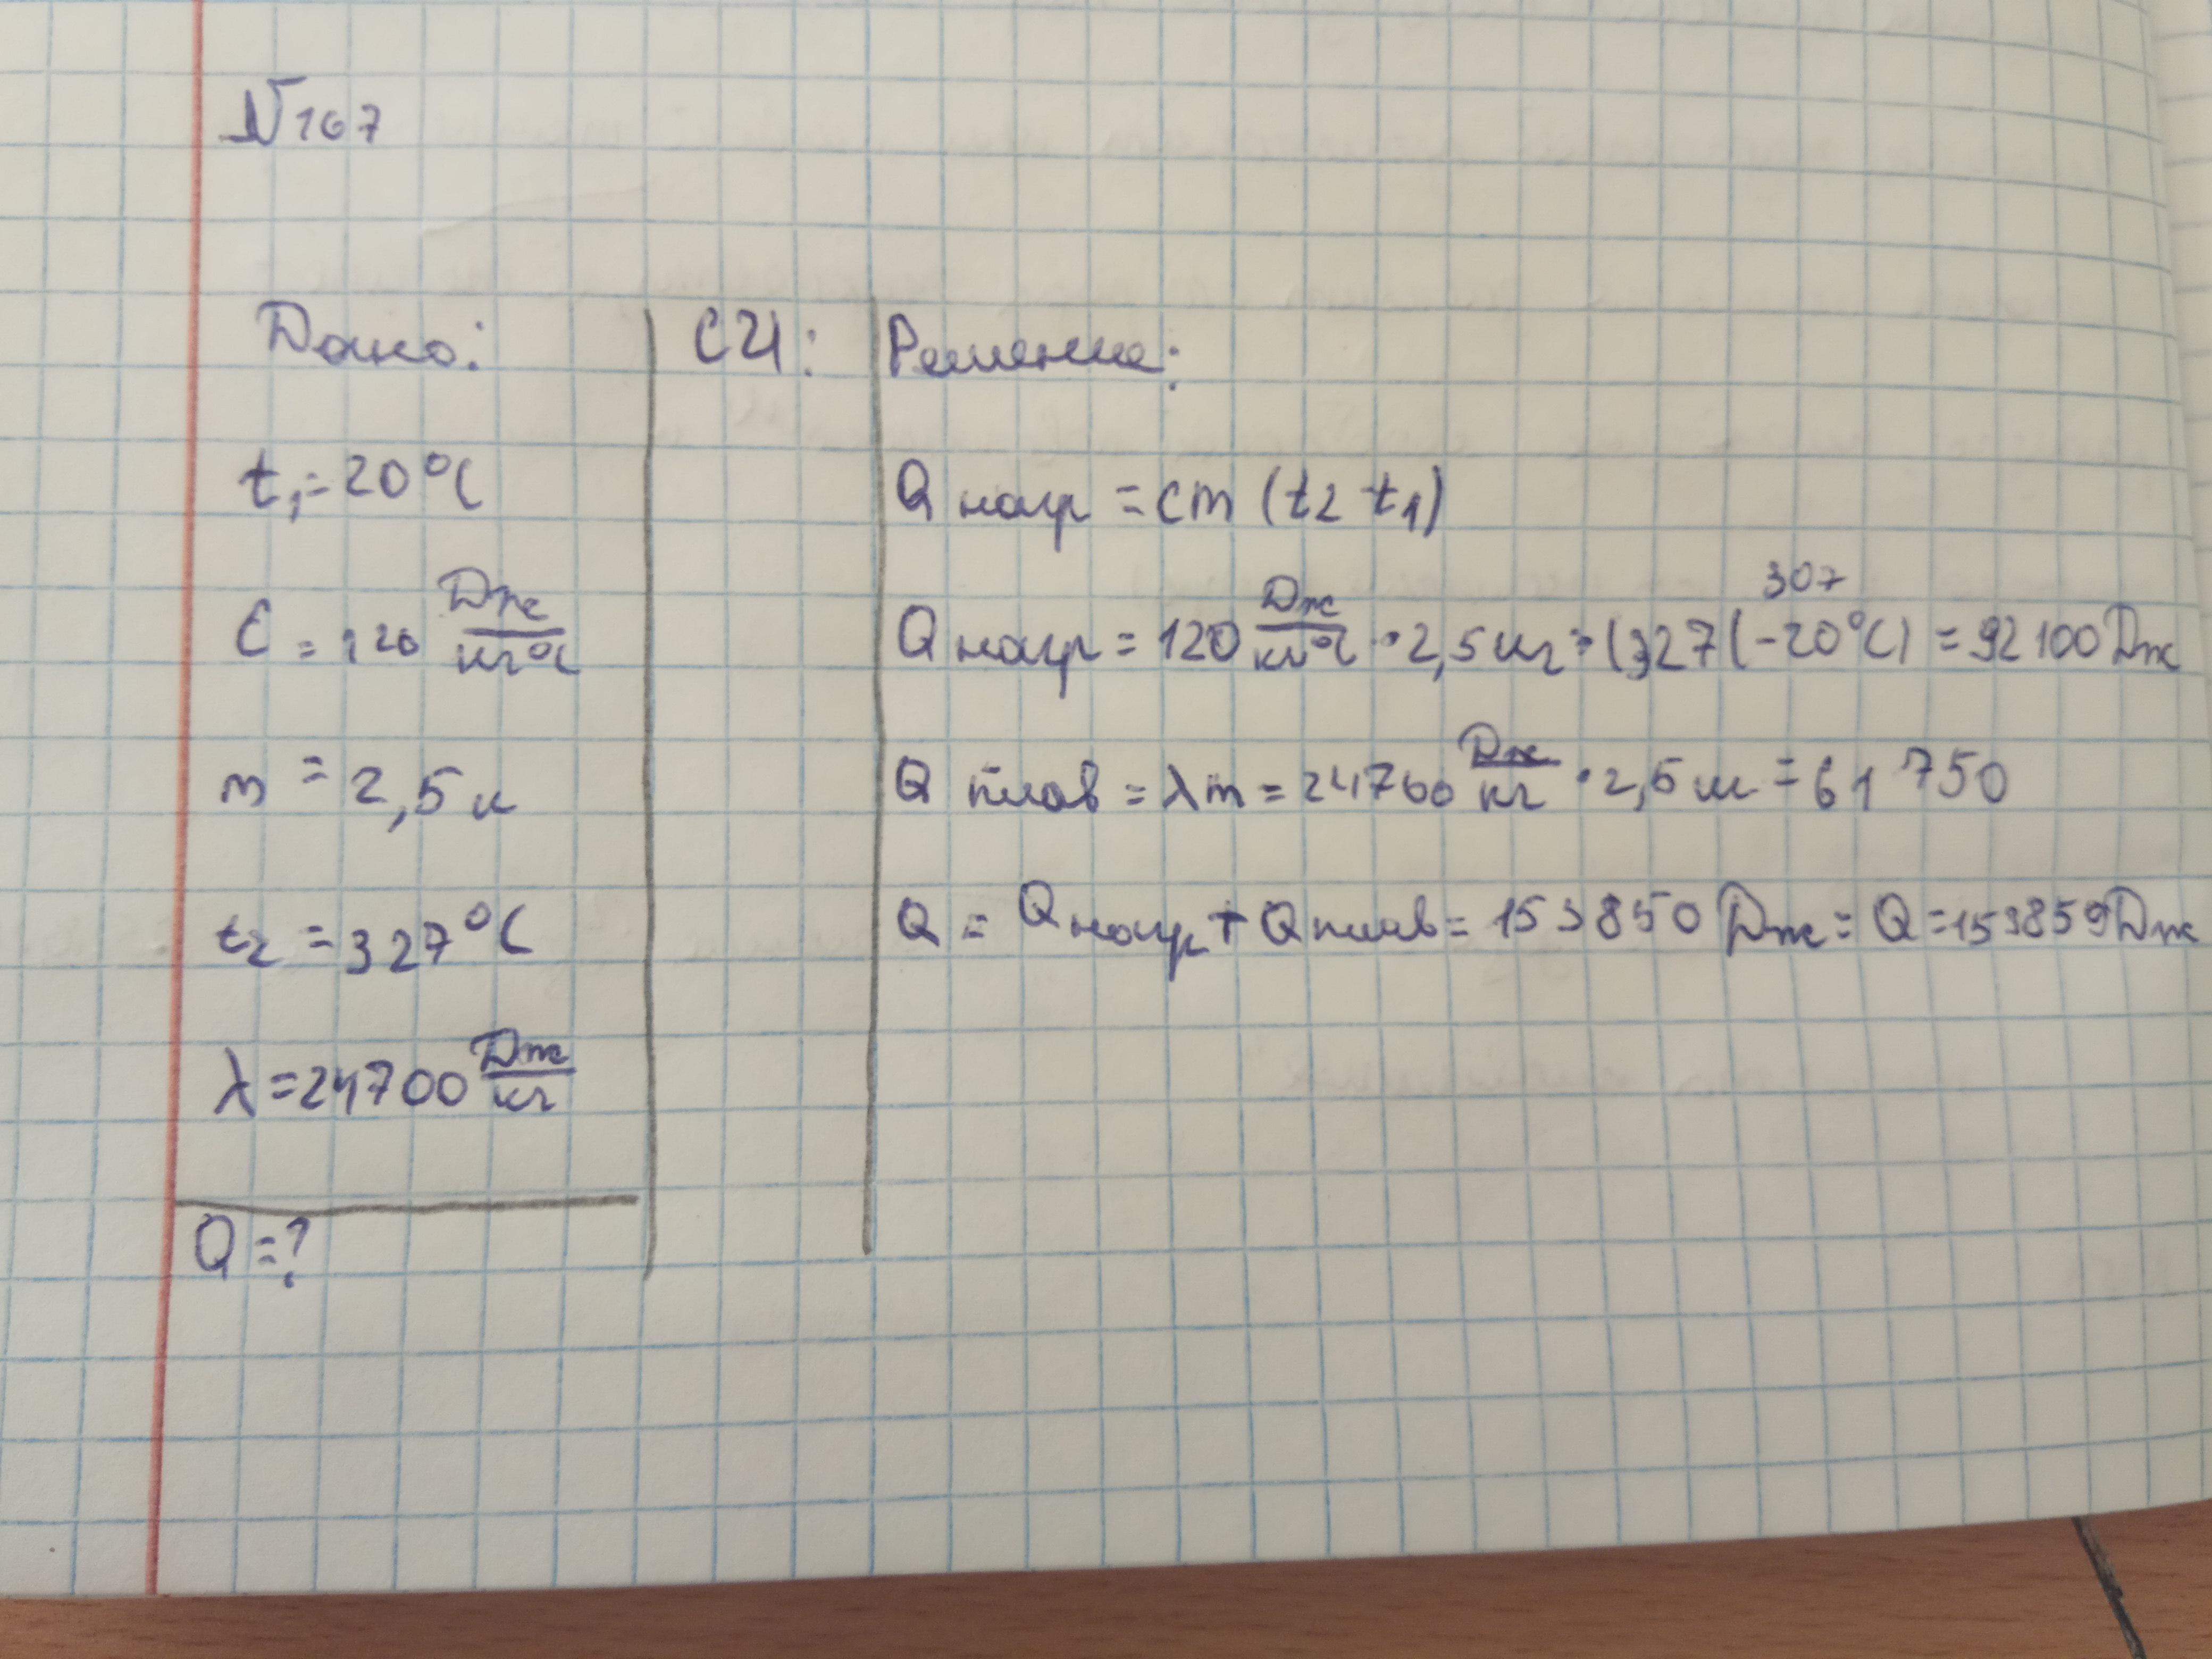 №167
Дано:
СИ:
Решение:
t₁=20°C
C=120 Дж/кг°C
m=2,5 к
t₂=327°C
λ=24700 Дж/кг
Q=?
Q нагр = cm (t₂ t₁)
307
Q нагр = 120 Дж/кг°C · 2,5 кг · (327(-20°C) = 92100 Дж
Q плав = λm = 24700 Дж/кг · 2,5 кг = 61 750
Q = Q нагр + Q плав = 153850 Дж = Q = 153859 Дж